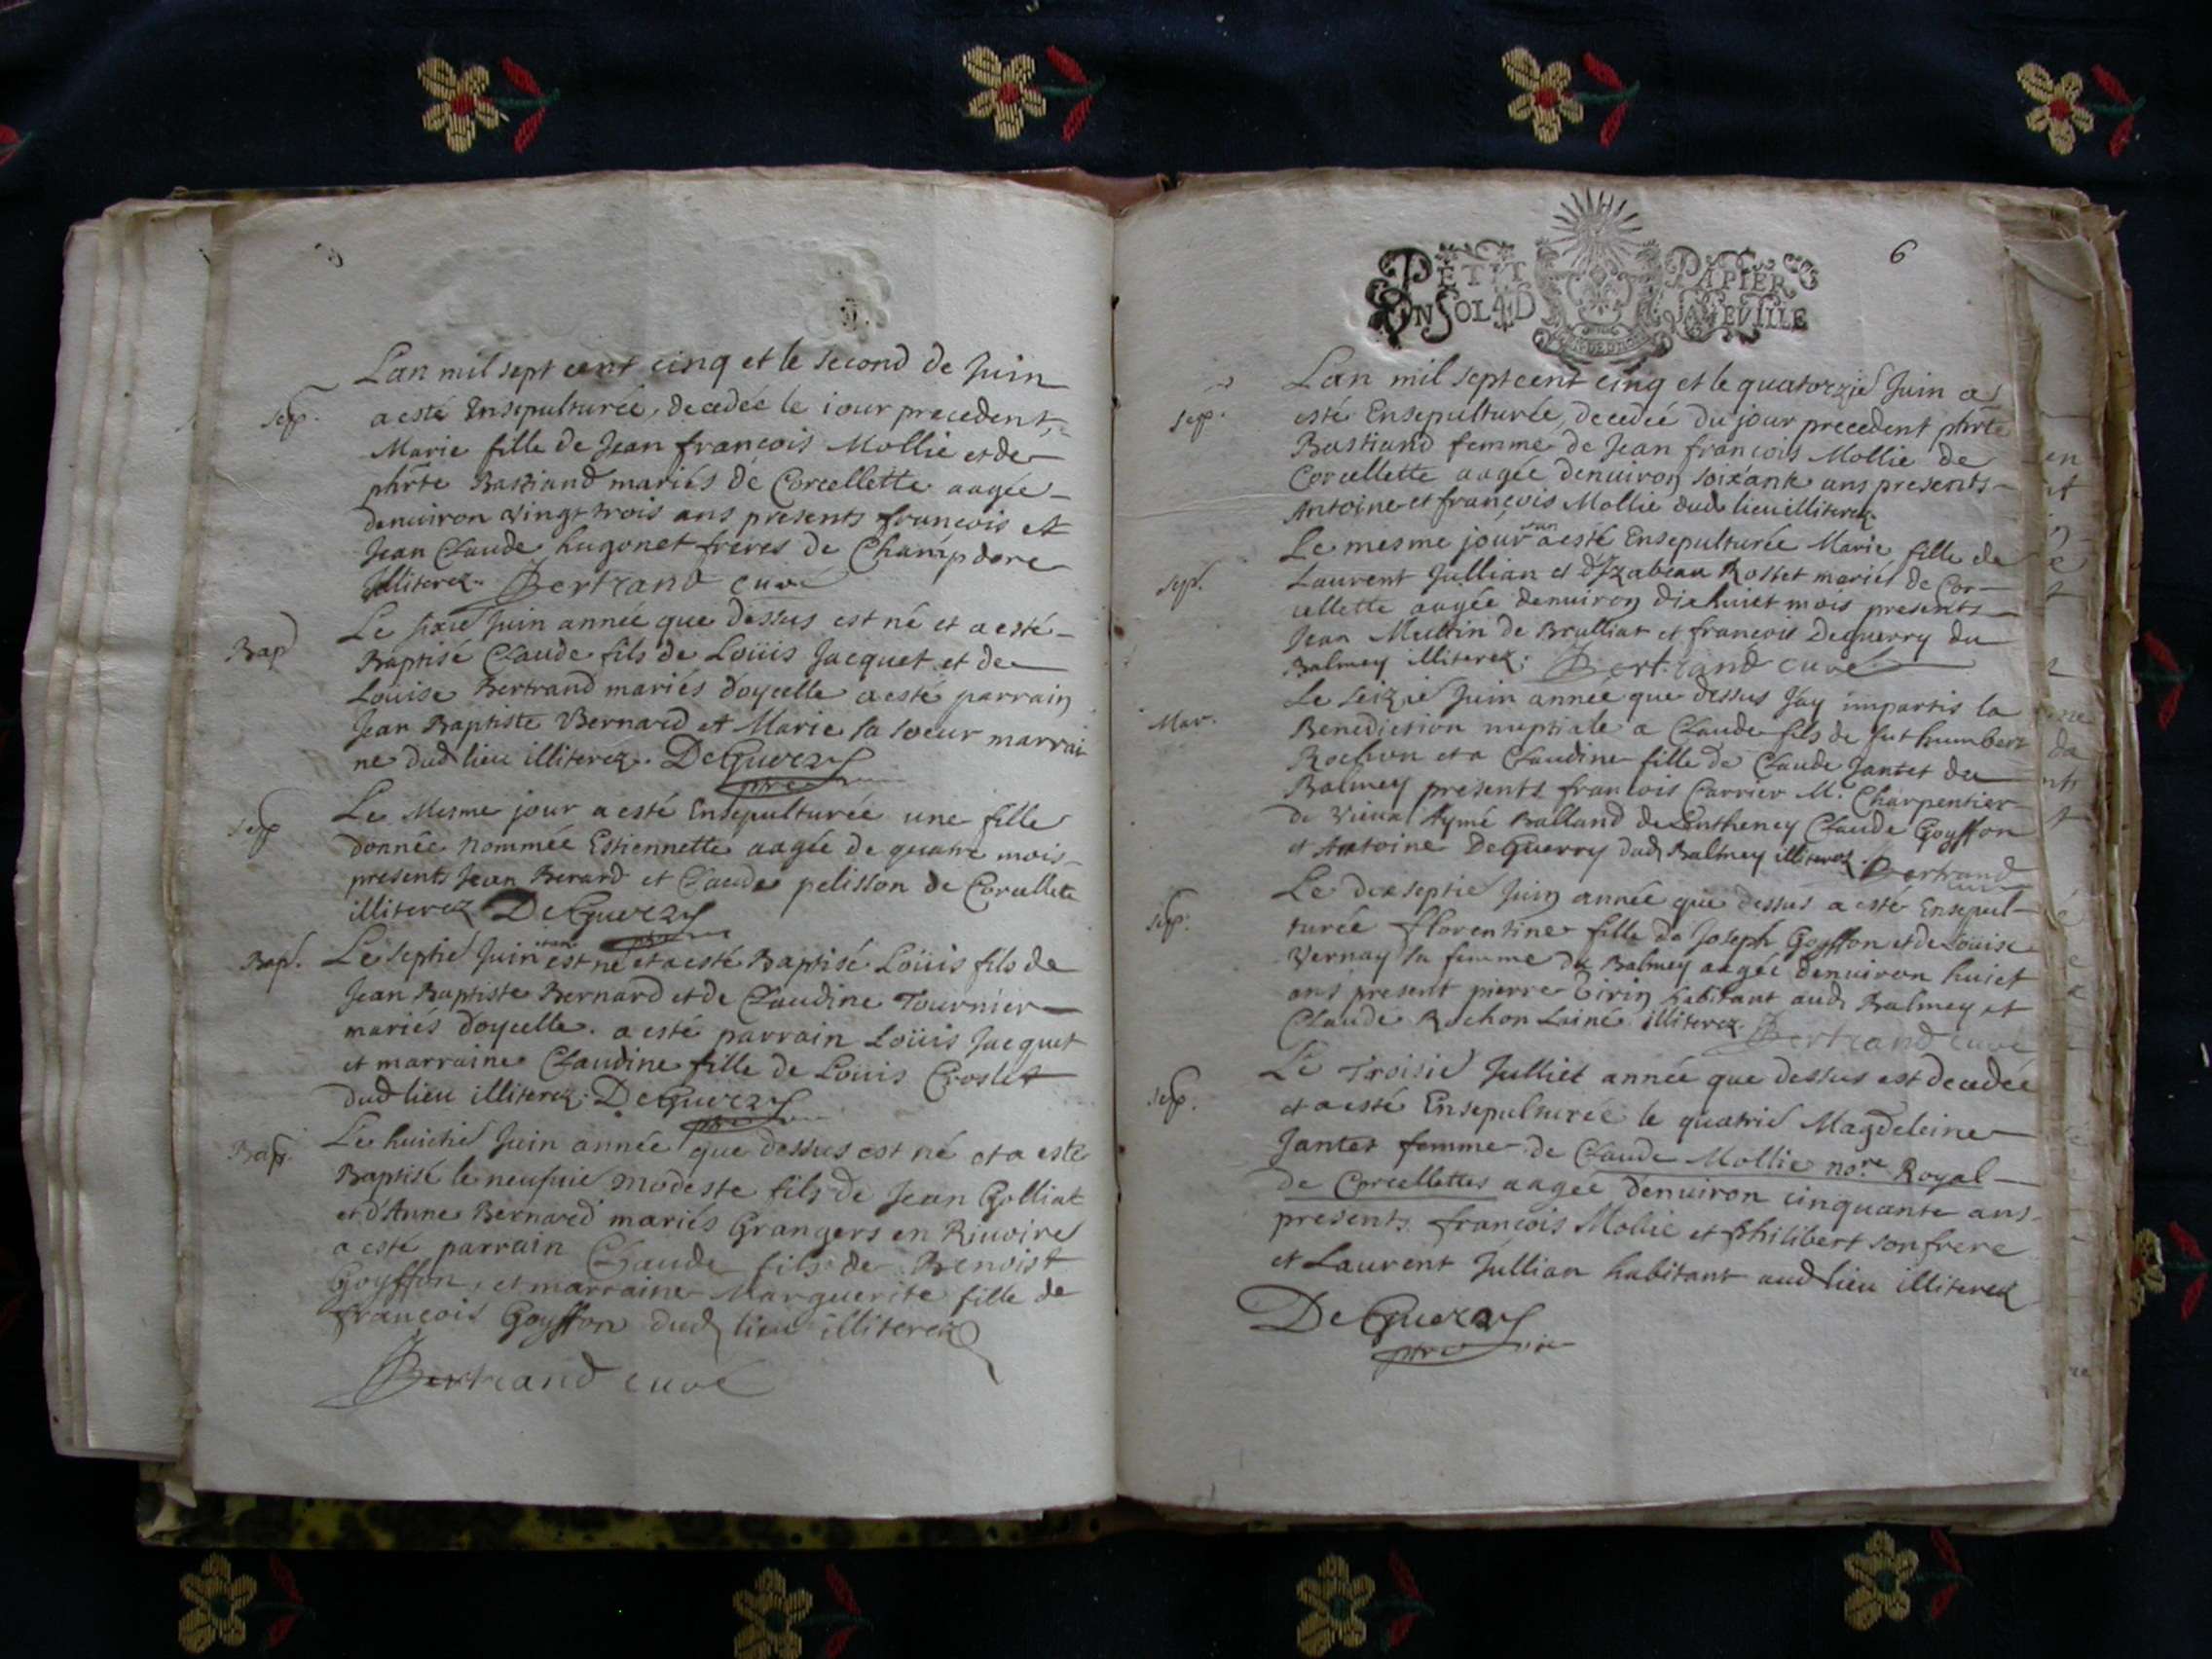 Lan mil sept cent cinq et le second de Juin
sep.
a esté Ensepulturée, decedée le iour precedent,
Marie fille de Jean françois Mollie et de
phīte Bastiand mariés de Corcellette aagée
denuiron vingt trois ans presents françois et
Jean Claude hugonet freres de Champdore
Illiterez. Bertrand curé
Bap
Le sixie Juin année que dessus est né et a esté
Baptisé Claude fils de Loüis Jacquet et de
Loüise Bertrand mariés doycelle a esté parrain
Jean Baptiste Bernard et Marie sa soeur marrai
ne dud lieu illiterez. DeGuerry
ptre
sep
Le Mesme jour a esté Ensepulturée une fille
donnée nommée Estiennette aagée de quatre mois
presents Jean Berard et Claude pelisson de Corcellette
illiterez DeGuerry
ptre
Bap.
Le septie Juin est né et a esté Baptisé Loüis fils de
Jean Baptiste Bernard et de Claudine Tournier
mariés doycelle. a esté parrain Loüis Jacquet
et marraine Claudine fille de Loüis Croslet
dud lieu illiterez. DeGuerry
ptre
Bap.
Le huictie Juin année que dessus est né et a esté
Baptisé le neufuie modeste fils de Jean Golliat
et d'Anne Bernard mariés Grangers en Riuoire
a esté parrain Claude fils de Benoist
Goyffon, et marraine Marguerite fille de
françois Goyffon dud lieu illiterez
Bertrand curé
6
PETIT PAPIER
UN SOL 4 D LA FEVILLE
Lan mil sept cent cinq et le quatorzie Juin a
sep.
esté Ensepulturée, decedée du jour precedent phīte
Bastiand femme de Jean françois Mollie de
Corcellette aagée denuiron soixante ans presents
Antoine et françois Mollie dud lieu illiterez
Le mesme jour a esté Ensepulturée Marie fille de
sep.
Laurent Jullian et d'Izabeau Rostet mariés de Cor
cellette aagée denuiron dixhuict mois presents
Jean Mettin de Brulliat et françois Deguerry du
Balmey illiterez. Bertrand curé
Le seizie Juin année que dessus Jay impartis la
Mar.
Benediction nuptiale a Claude fils de fut humbert
Rochon et a Claudine fille de Claude Jantet du
Balmey presents françois Carrier M. Charpentier
de Vieux Aymé Balland de Claude Goyffon
et Antoine DeGuerry dud Balmey illiterez. Bertrand
curé
Le dixseptie Juin année que dessus a esté Ensepul
sep.
turée florentine fille de Joseph Goyffon et de Loüise
Vernay sa femme du Balmey aagée denuiron huict
ans present pierre Tirin habitant aud Balmey et
Claude Rochon Lainé illiterez. Bertrand curé
Le Troisie Julliet année que dessus est decedée
sep.
et a esté Ensepulturée le quatrie Magdeleine
Jantet femme de Claude Mollie no.re Royal
de Corcellettes aagee denuiron cinquante ans
presents françois Mollie et philibert son frere
et Laurent Jullian habitant aud lieu illiterez
DeGuerry
ptre